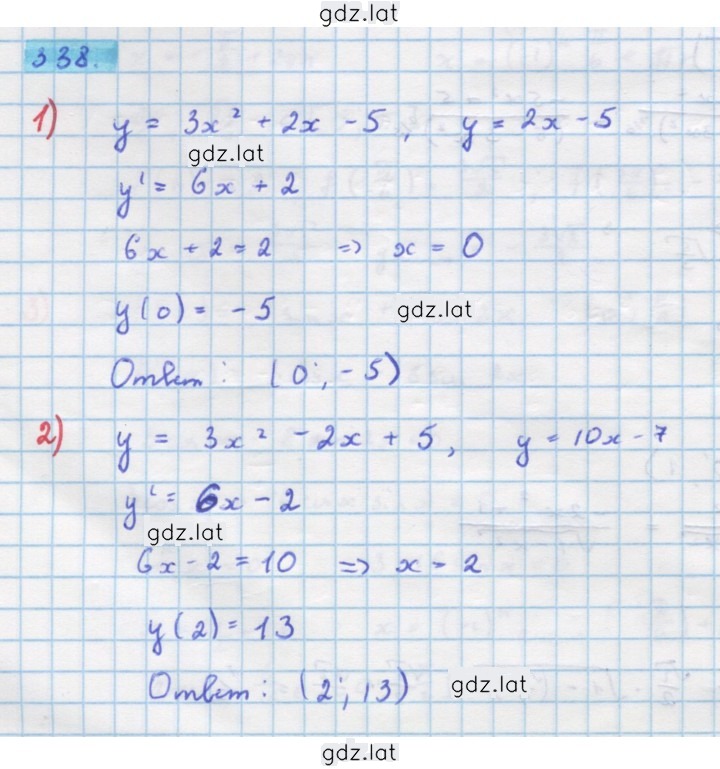 gdz.lat
338.
1) y = 3x² + 2x - 5, y = 2x - 5
gdz.lat
y' = 6x + 2
6x + 2 = 2 => x = 0
y(0) = -5 gdz.lat
Ответ: (0; -5)
2) y = 3x² - 2x + 5, y = 10x - 7
y' = 6x - 2
gdz.lat
6x - 2 = 10 => x = 2
y(2) = 13
Ответ: (2; 13) gdz.lat
gdz.lat